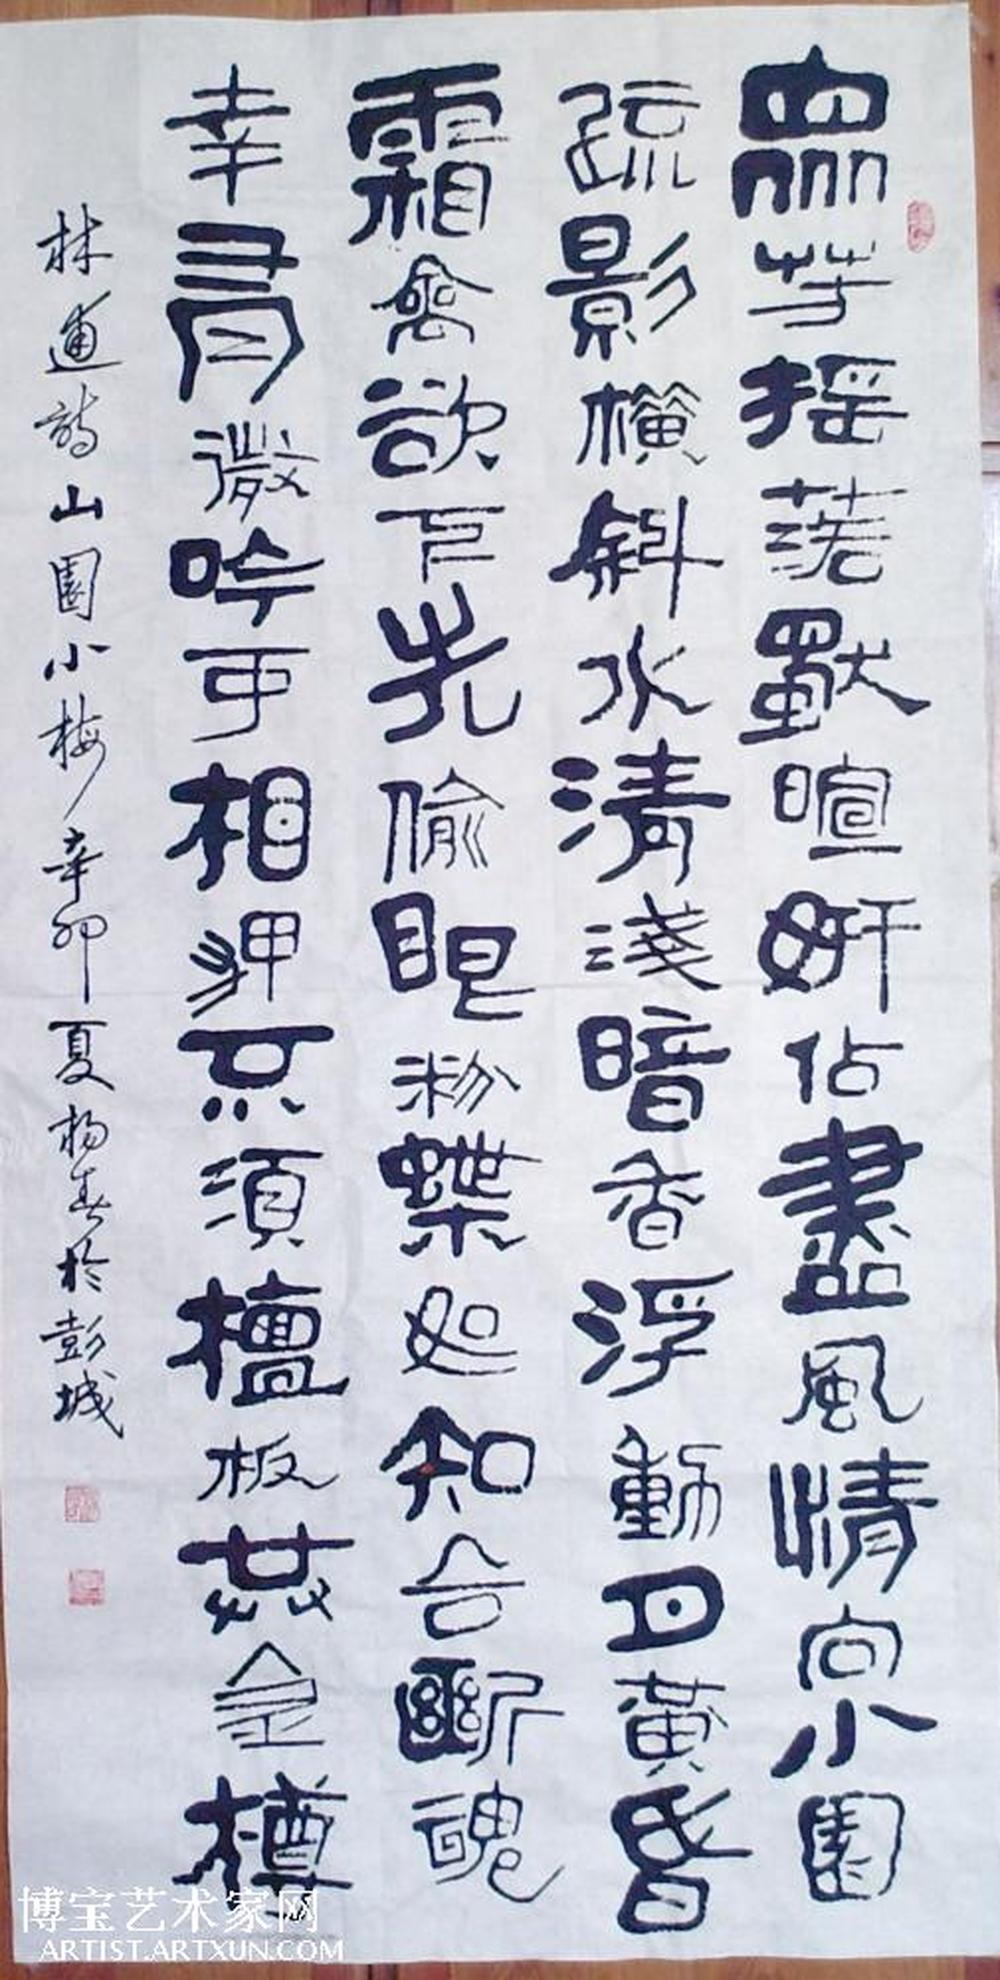 眾芳搖落獨暄妍佔盡風情向小園
疏影橫斜水清淺暗香浮動月黃昏
霜禽欲下先偷眼粉蝶如知合斷魂
幸有微吟可相狎不須檀板共金樽
林逋詩山園小梅辛卯夏楊春於彭城
博宝艺术家网
ARTIST.ARTXUN.COM